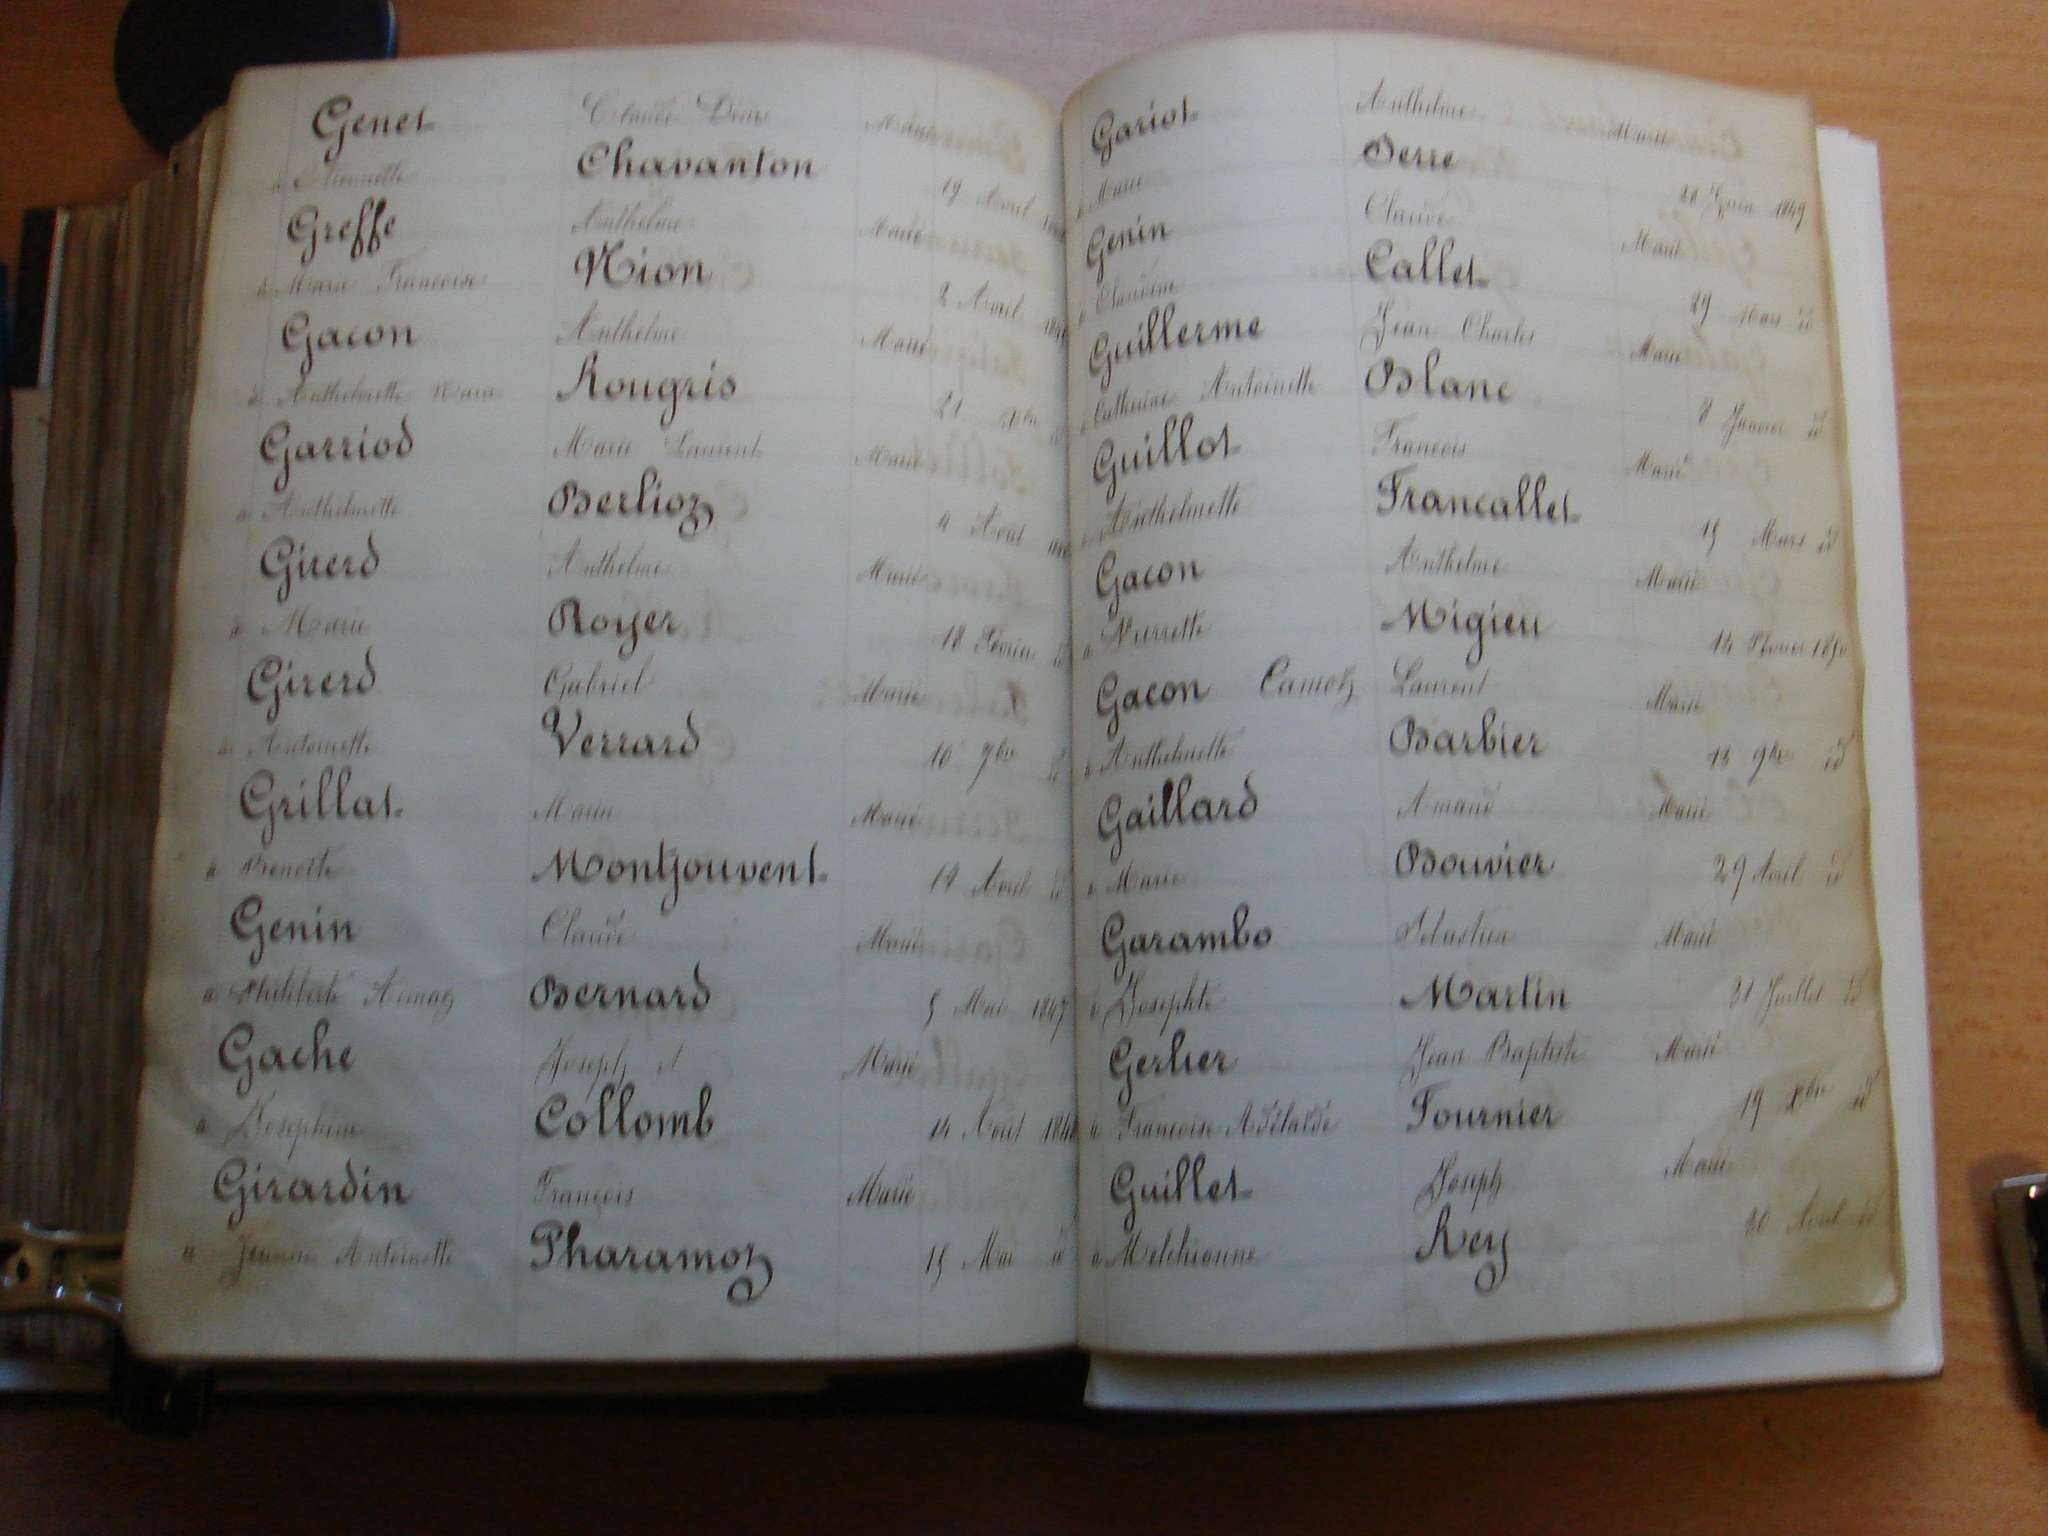 Genet Claude Denis Marié
à Etiennette Chavanton 19 Avril
Greffe Anthelme Marié
à Marie Francoise Nion 2 Avril
Gacon Anthelme Marié
à Anthelmette Marie Rougris 21 Xbre id
Garriod Marie Laurent Marié
à Anthelmette Berlioz 4 Aout
Girerd Anthelme Marié
à Marie Royer 18 Février id
Girerd Gabriel Marié
à Antoinette Verrard 10 7bre id
Grillat Marin Marié
à Benoite Montjouvent 14 Avril id
Genin Claude Marié
à Philiberte Aimay Bernard 5 Mai 1847
Gache Joseph A Marié
à Josephine Collomb 14 Aout
Girardin François Marié
à Jeanne Antoinette Pharamoz 15 Mai id
Gariot Anthelme Marié
à Marie Derre Juin 1849
Genin Claude Marié
à Claudine Callet 29 Mars id
Guillerme Jean Charles Marié
à Catherine Antoinette Blanc 8 Janvier id
Guillot Francois Marié
à Anthelmette Francallet 15 Mars id
Gacon Anthelme Marié
à Pierrette Migieu 14 1850
Gacon Camoz Laurent Marié
à Anthelmette Barbier 13 9bre id
Gaillard Amand Marié
à Marie Bouvier 29 Avril id
Garambo Sébastien Marié
à Josephte Martin 31 Juillet id
Gerlier Jean Baptiste Marié
à Francoise Adélaïde Fournier 19 Xbre id
Guillet Joseph Marié
à Melchionne Rey 30 Avril id